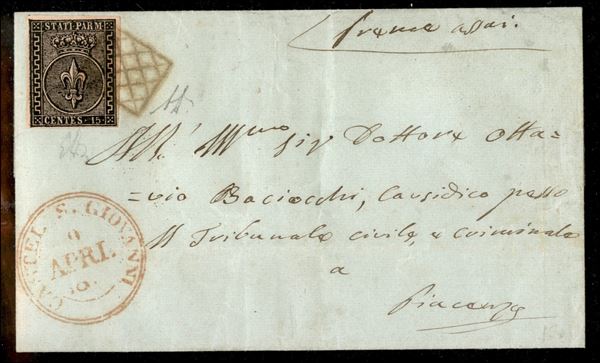 STATI PARM.
CENTES. 15
Preme assai.
All' Illmo Sig Dottore Otta=
=vio Baciocchi, Causidico presso
il Tribunale civile, e criminale
a
Piacenza
CASTEL S. GIOVANNI
9
APRI.